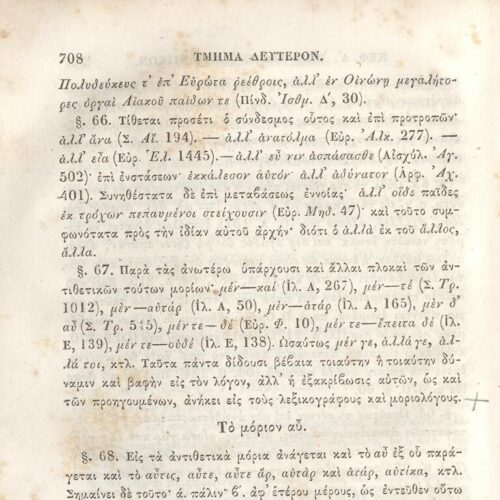 708 ΤΜΗΜΑ ΔΕΥΤΕΡΟΝ.
Πολυδεύκευς τ' ἐπ' Εὐρώτα ῥεέθροις, ἀλλ' ἐν Οἰνώνῃ μεγαλήτο-
ρες ὀργαὶ Αἰακοῦ παίδων τε (Πίνδ. Ἰσθμ. Δ', 30).
§. 66. Τίθεται προσέτι ὁ σύνδεσμος οὗτος καὶ ἐπὶ προτροπῶν·
ἀλλ' ἄνα (Σ. Αἴ. 194). — ἀλλ' ἀνατόλμα (Εὐρ. Ἀλκ. 277). —
ἀλλ' εἶα (Εὐρ. Ἐλ. 1445).— ἀλλ' εὖ νιν ἀσπάσασθε (Αἰσχύλ. Ἀγ.
502)· ἐπὶ ἐνστάσεων· ἐκκάλεσον αὐτόν· ἀλλ' ἀδύνατον (Ἀρφ. Ἀχ.
401). Συνηθέστατα δὲ ἐπὶ μεταβάσεως ἐννοίας· ἀλλ' οἵδε παῖδες
ἐκ τρόχων πεπαυμένοι στείχουσιν (Εὐρ. Μηδ. 47)· καὶ τοῦτο συμ-
φωνότατα πρὸς τὴν ἰδίαν αὐτοῦ ἀρχήν· διότι ὁ ἀλλὰ ἐκ τοῦ ἄλλος,
ἄλλα.
§. 67. Παρὰ τὰς ἀνωτέρω ὑπάρχουσι καὶ ἄλλαι πλοκαὶ τῶν ἀν-
τιθετικῶν τούτων μορίων· μὲν—καὶ (Ἰλ. Α, 267), μὲν—τὲ (Σ. Τρ.
1012), μὲν—αὐτὰρ (Ἰλ. Α, 50), μὲν—ἀτὰρ (Ἰλ. Α, 165), μὲν δ'
αὖ (Σ. Τρ. 545), μέν τε—δὲ (Εὐρ. Φ. 10), μέν τε—ἔπειτα δὲ (Ἰλ.
Ε, 139), μέν τε—οὐδὲ (Ἰλ. Ε, 138). Ὡσαύτως μέν γε, ἀλλά γε, ἀλ-
λά τοι, κτλ. Ταῦτα πάντα δίδουσι βέβαια τοιαύτην ἢ τοιαύτην δύ-
ναμιν καὶ βαφὴν εἰς τὸν λόγον, ἀλλ' ἡ ἐξακρίβωσις αὐτῶν, ὡς καὶ
τῶν προηγουμένων, ἀνήκει εἰς τοὺς λεξικογράφους καὶ μοριολόγους.
Τὸ μόριον αὖ.
§. 68. Εἰς τὰ ἀντιθετικὰ μόρια ἀνάγεται καὶ τὸ αὖ ἐξ οὗ παρά-
γεται καὶ τὸ αὖτις, αὖτε, αὖτε ἄρ, αὐτὰρ καὶ ἀτὰρ, αὐτίκα, κτλ.
Σημαίνει δὲ τοῦτο· ά. πάλιν· β'. ἀφ' ἑτέρου μέρους, ὡς ἐντεῦθεν οὕτω